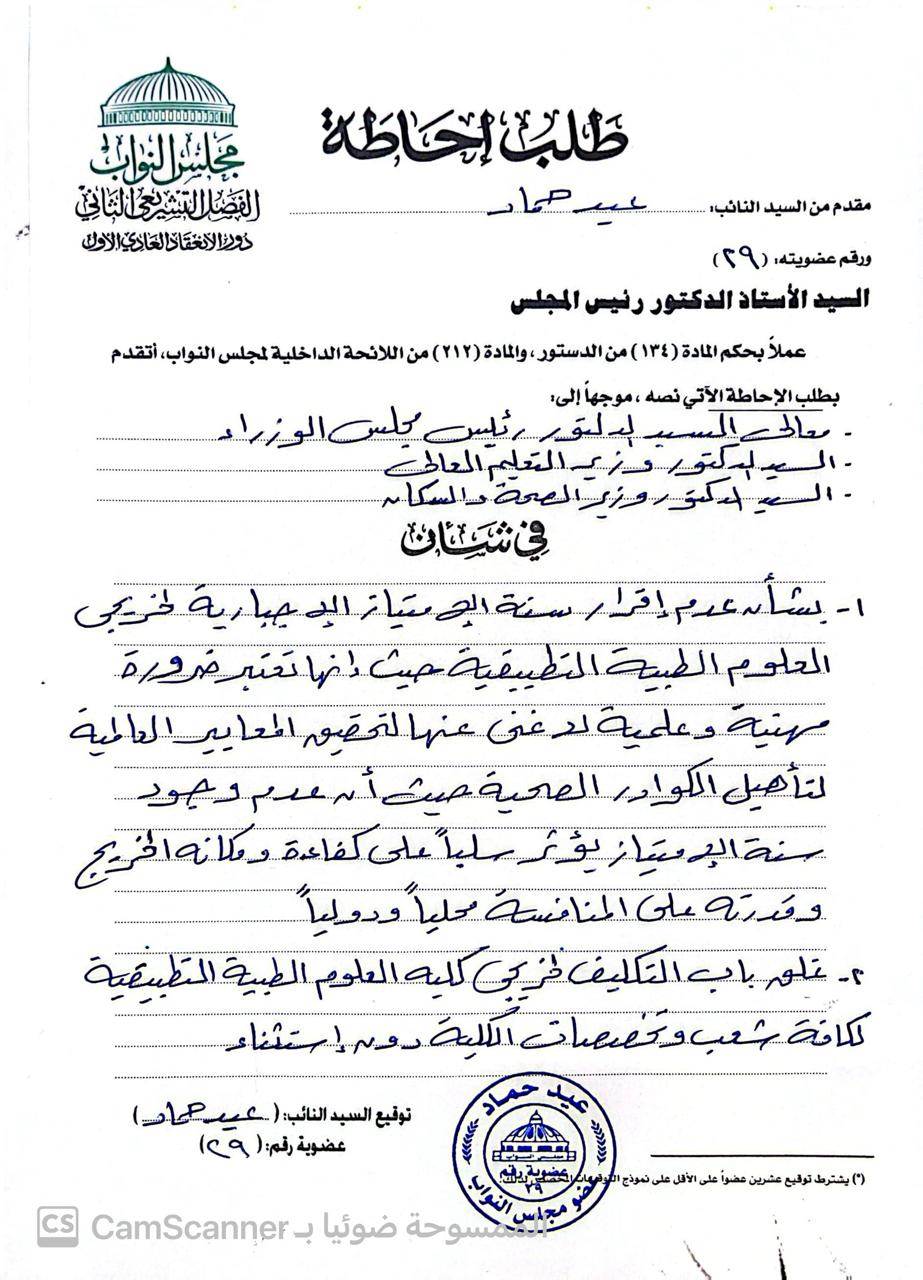 مجلس النواب
الفصل التشريعى الثانى
دور الانعقاد العادى الأول
طلب إحاطة
مقدم من السيد النائب: عيد حماد
ورقم عضويته: (٢٩)
السيد الأستاذ الدكتور رئيس المجلس
عملاً بحكم المادة (١٣٤) من الدستور، والمادة (٢١٢) من اللائحة الداخلية لمجلس النواب، أتقدم
بطلب الإحاطة الآتي نصه، موجهاً إلى:
- معالى السيد الدكتور رئيس مجلس الوزراء
- السيد الدكتور وزير التعليم العالى
- السيد الدكتور وزير الصحة والسكان
في شأن
١- بشأن عدم إقرار سنة الإمتياز الإجبارية لخريجى
العلوم الطبية التطبيقية حيث إنها تعتبر ضرورة
مهنية وعلمية لا غنى عنها لتحقيق المعايير العالمية
لتأهيل الكوادر الصحية حيث أن عدم وجود
سنة الإمتياز يؤثر سلباً على كفاءة ومكانه الخريج
وقدرته على المنافسة محلياً ودولياً
٢- غلق باب التكليف لخريجى كلية العلوم الطبية التطبيقية
لكافة شعب وتخصصات الكلية دون إستثناء
توقيع السيد النائب: (عيد حماد)
عضوية رقم: (٢٩)
عيد حماد
مجلس النواب
عضوية رقم
٢٩
عضو مجلس النواب
(*) يشترط توقيع عشرين عضواً على الأقل على نموذج التوقيعات المخصص لذلك.
CS CamScanner الممسوحة ضوئيا بـ